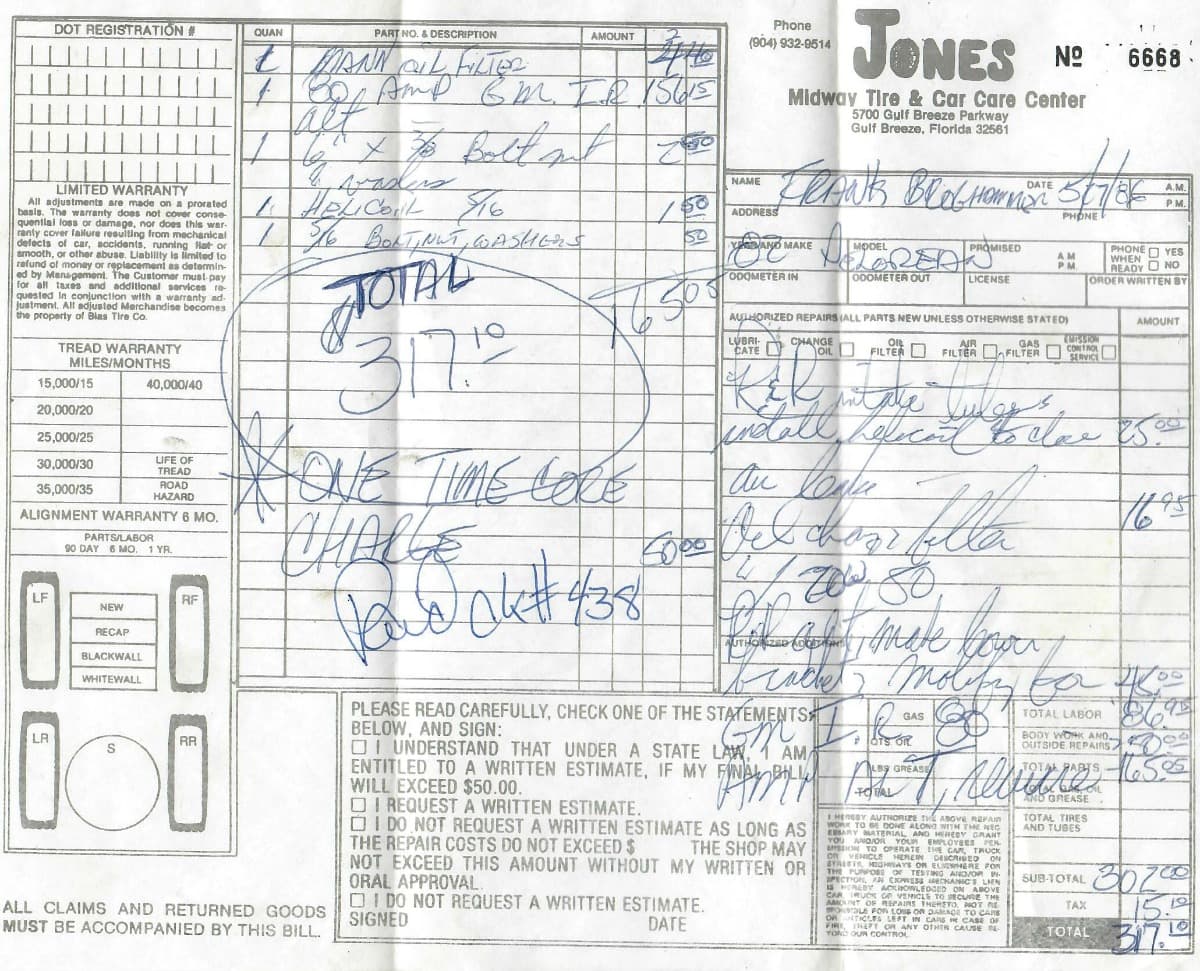 DOT REGISTRATION #
LIMITED WARRANTY
All adjustments are made on a prorated
basis. The warranty does not cover conse-
quential loss or damage, nor does this war-
ranty cover failure resulting from mechanical
defects of car, accidents, running flat or
smooth, or other abuse. Liability is limited to
refund of money or replacement as determin-
ed by Management. The Customer must pay
for all taxes and additional services re-
quested in conjunction with a warranty ad-
justment. All adjusted Merchandise becomes
the property of Bias Tire Co.
TREAD WARRANTY
MILES/MONTHS
15,000/15 40,000/40
20,000/20
25,000/25
30,000/30 LIFE OF TREAD
35,000/35 ROAD HAZARD
ALIGNMENT WARRANTY 6 MO.
PARTS/LABOR
90 DAY 6 MO. 1 YR.
LF RF
NEW
RECAP
BLACKWALL
WHITEWALL
LR S RR
ALL CLAIMS AND RETURNED GOODS
MUST BE ACCOMPANIED BY THIS BILL.
QUAN PART NO. & DESCRIPTION AMOUNT
1 MANN OIL FILTER
1 80 AMP GM. I.R 156 15
alt
1 6" x 3/8 Bolt nut
& washers
1 HELICOIL 5/16 1 50
1 5/16 BOLT, NUT, WASHERS 50
TOTAL 165 05
$317.10
* ONE TIME CORE
CHARGE 50 00
Paid ck# 438
PLEASE READ CAREFULLY, CHECK ONE OF THE STATEMENTS
BELOW, AND SIGN:
I UNDERSTAND THAT UNDER A STATE LAW, I AM
ENTITLED TO A WRITTEN ESTIMATE, IF MY FINAL BILL
WILL EXCEED $50.00.
I REQUEST A WRITTEN ESTIMATE.
I DO NOT REQUEST A WRITTEN ESTIMATE AS LONG AS
THE REPAIR COSTS DO NOT EXCEED $ THE SHOP MAY
NOT EXCEED THIS AMOUNT WITHOUT MY WRITTEN OR
ORAL APPROVAL.
I DO NOT REQUEST A WRITTEN ESTIMATE.
SIGNED DATE
Phone
(904) 932-9514
JONES
Nº 6668
Midway Tire & Car Care Center
5700 Gulf Breeze Parkway
Gulf Breeze, Florida 32561
NAME FRANK DATE 5/17/86 A.M.
P.M.
ADDRESS PHONE
YEAR AND MAKE 82 MODEL DELOREAN PROMISED A.M P.M. PHONE WHEN READY YES NO
ODOMETER IN ODOMETER OUT LICENSE ORDER WRITTEN BY
AUTHORIZED REPAIRS (ALL PARTS NEW UNLESS OTHERWISE STATED) AMOUNT
LUBRICATE CHANGE OIL OIL FILTER AIR FILTER GAS FILTER EMISSION CONTROL SERVICE
R&R intake
install helicoil to close 25.00
air leake
Oil change filter 16 95
w/ 20w, 50
AUTHORIZED ADDITIONS
alt, make lower
bracket, modify for 45.00
GM I.R. 80
AMP
GAS
QTS. OIL
LBS GREASE
TOTAL
TOTAL LABOR 86.95
BODY WORK AND OUTSIDE REPAIRS 50.00
TOTAL PARTS 165.05
TOTAL GAS, OIL AND GREASE
TOTAL TIRES AND TUBES
SUB-TOTAL 302.00
TAX 15.10
TOTAL 317.10
I HEREBY AUTHORIZE THE ABOVE REPAIR
WORK TO BE DONE ALONG WITH THE NEC-
ESSARY MATERIAL, AND HEREBY GRANT
YOU AND/OR YOUR EMPLOYEES PER-
MISSION TO OPERATE THE CAR, TRUCK
OR VEHICLE HEREIN DESCRIBED ON
STREETS, HIGHWAYS OR ELSEWHERE FOR
THE PURPOSE OF TESTING AND/OR IN-
SPECTION. AN EXPRESS MECHANIC'S LIEN
IS HEREBY ACKNOWLEDGED ON ABOVE
CAR TRUCK OR VEHICLE TO SECURE THE
AMOUNT OF REPAIRS THERETO. NOT RE-
SPONSIBLE FOR LOSS OR DAMAGE TO CARS
OR ARTICLES LEFT IN CARS IN CASE OF
FIRE, THEFT OR ANY OTHER CAUSE BE-
YOND OUR CONTROL.